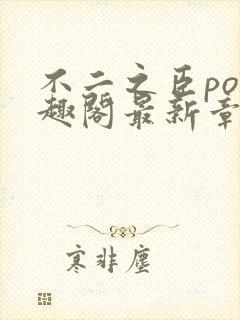 不二之臣po
趣阁最新章
寒非尘